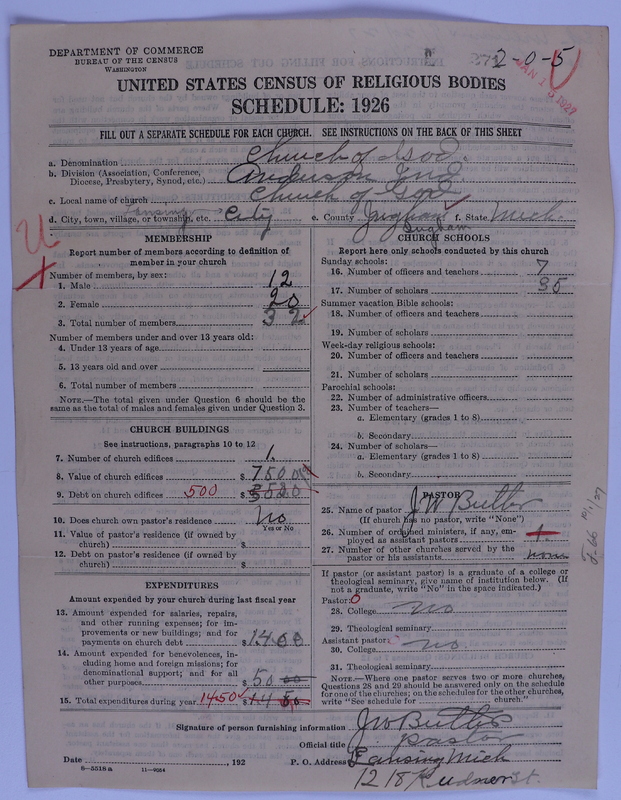 DEPARTMENT OF COMMERCE
BUREAU OF THE CENSUS
WASHINGTON
2-0-5
JAN 1 1927
UNITED STATES CENSUS OF RELIGIOUS BODIES
SCHEDULE: 1926
FILL OUT A SEPARATE SCHEDULE FOR EACH CHURCH. SEE INSTRUCTIONS ON THE BACK OF THIS SHEET
a. Denomination Church of God.
b. Division (Association, Conference, Diocese, Presbytery, Synod, etc.) Anderson Ind
c. Local name of church Church of God
d. City, town, village, or township, etc. Lansing City e. County Ingham Ingham f. State Mich.
MEMBERSHIP
Report number of members according to definition of
member in your church
Number of members, by sex:
1. Male 12
2. Female 20
3. Total number of members 32
Number of members under and over 13 years old:
4. Under 13 years of age
5. 13 years old and over
6. Total number of members
NOTE.—The total given under Question 6 should be
same as the total of males and females given under Question 3.
CHURCH BUILDINGS
See instructions, paragraphs 10 to 12
7. Number of church edifices 1.
8. Value of church edifices $ 750
9. Debt on church edifices 500 $
10. Does church own pastor's residence No
Yes or No
11. Value of pastor's residence (if owned by
church) $
12. Debt on pastor's residence (if owned by
church) $
EXPENDITURES
Amount expended by your church during last fiscal year
13. Amount expended for salaries, repairs,
and other running expenses; for im-
provements or new buildings; and for
payments on church debt $ 1400
14. Amount expended for benevolences, in-
cluding home and foreign missions; for
denominational support; and for all
other purposes $ 50 00
15. Total expenditures during year 1450 $ 14 50
CHURCH SCHOOLS
Report here only schools conducted by this church
Sunday schools:
16. Number of officers and teachers 7
17. Number of scholars 35
Summer vacation Bible schools:
18. Number of officers and teachers
19. Number of scholars
Week-day religious schools:
20. Number of officers and teachers
21. Number of scholars
Parochial schools:
22. Number of administrative officers
23. Number of teachers—
a. Elementary (grades 1 to 8)
b. Secondary
24. Number of scholars—
a. Elementary (grades 1 to 8)
b. Secondary
PASTOR
25. Name of pastor J W Butler
(If church has no pastor, write "None")
26. Number of ordained ministers, if any, em-
ployed as assistant pastors 1.
27. Number of other churches served by the
pastor or his assistants none
If pastor (or assistant pastor) is a graduate of a college or
theological seminary, give name of institution below. (If
not a graduate, write "No" in the space indicated.)
Pastor: 0
28. College no
29. Theological seminary
Assistant pastor:
30. College no
31. Theological seminary
NOTE.—Where one pastor serves two or more churches,
Questions 28 and 29 should be answered only on the schedule
for one of the churches; on the schedules for the other churches,
write "See schedule for church."
Signature of person furnishing information J W Butler
Official title pastor
Date , 192 P. O. Address Lansing Mich
8-5518a 11-9054
1218 St.